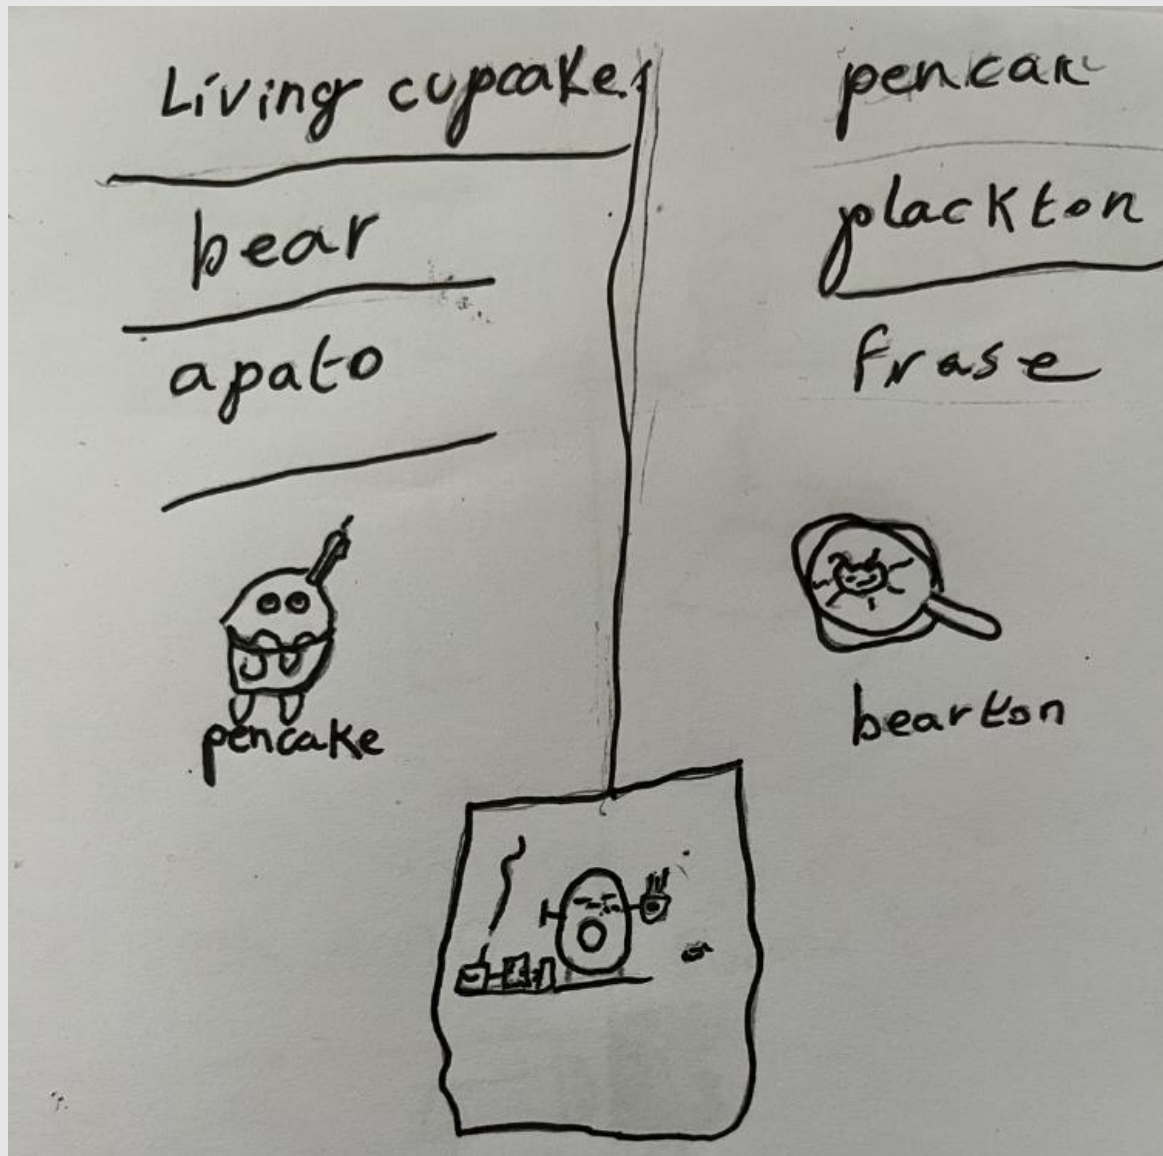 Living cupcake
bear
apato
pencake
plackton
frase
bearton